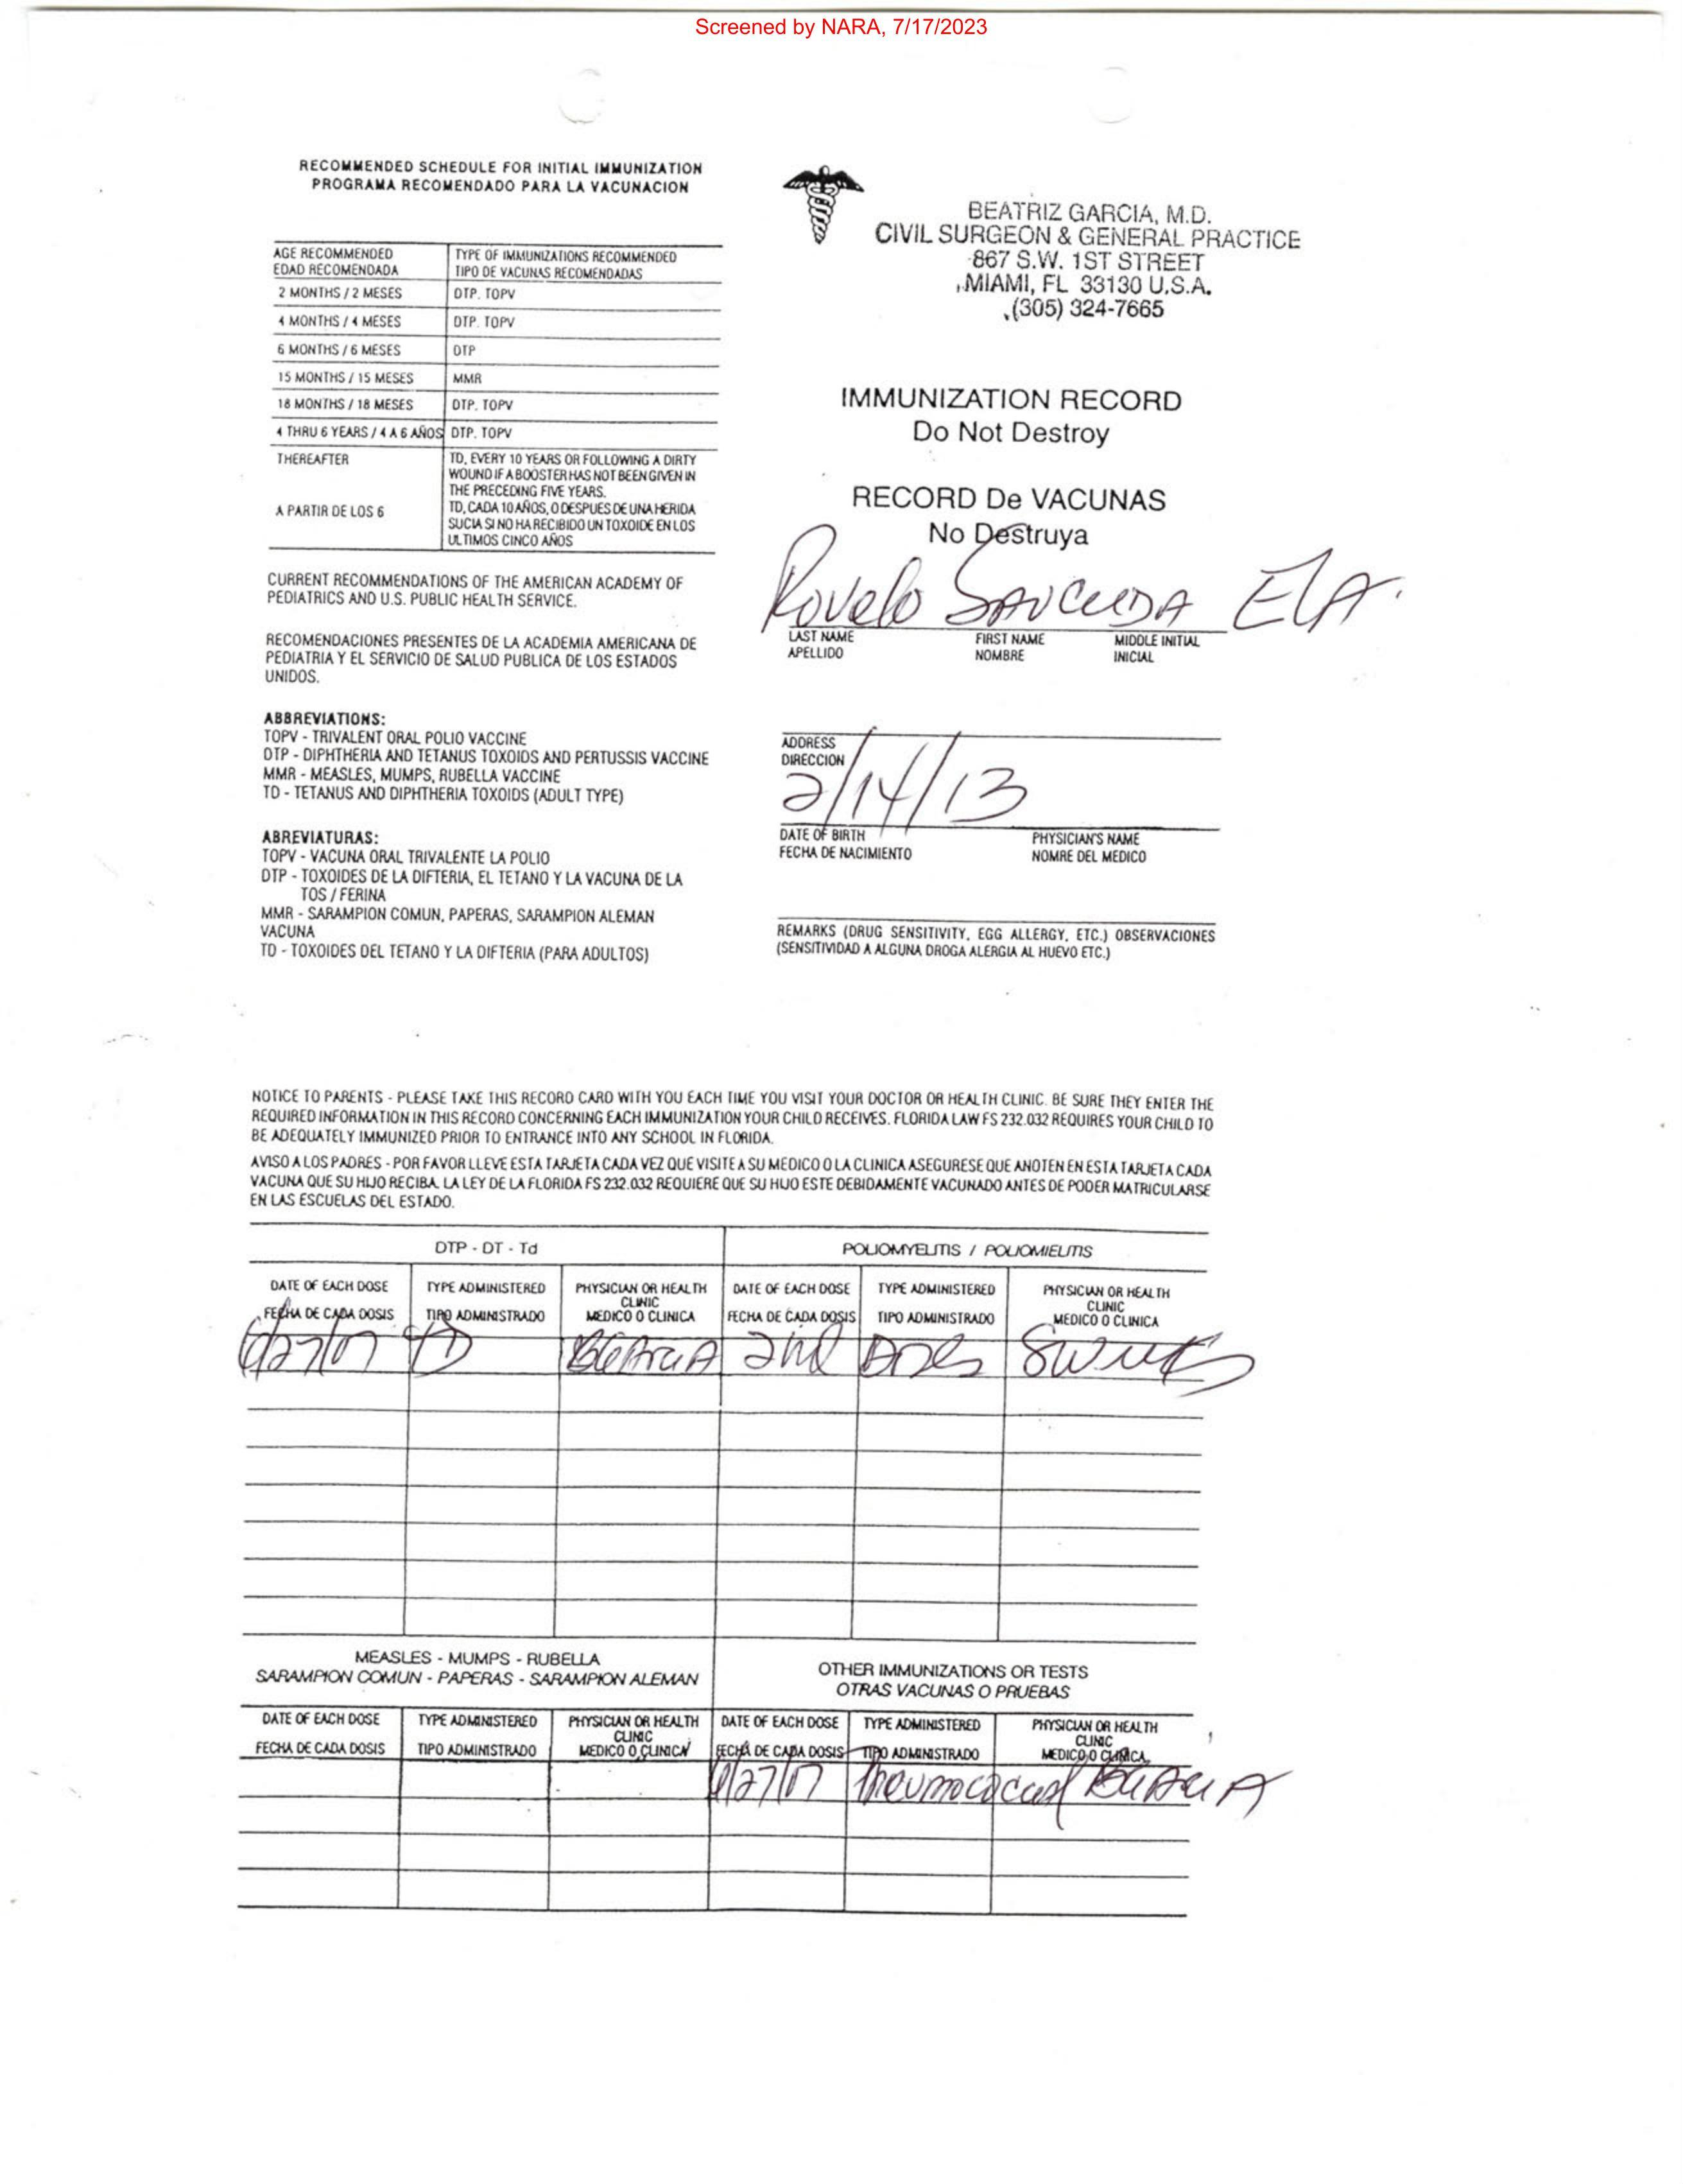 Screened by NARA, 7/17/2023
RECOMMENDED SCHEDULE FOR INITIAL IMMUNIZATION
PROGRAMA RECOMENDADO PARA LA VACUNACION
AGE RECOMMENDED
EDAD RECOMENDADA
TYPE OF IMMUNIZATIONS RECOMMENDED
TIPO DE VACUNAS RECOMENDADAS
2 MONTHS / 2 MESES DTP. TOPV
4 MONTHS / 4 MESES DTP. TOPV
6 MONTHS / 6 MESES DTP
15 MONTHS / 15 MESES MMR
18 MONTHS / 18 MESES DTP. TOPV
4 THRU 6 YEARS / 4 A 6 AÑOS DTP. TOPV
THEREAFTER
TD, EVERY 10 YEARS OR FOLLOWING A DIRTY
WOUND IF A BOOSTER HAS NOT BEEN GIVEN IN
THE PRECEDING FIVE YEARS.
A PARTIR DE LOS 6
TD, CADA 10 AÑOS, O DESPUES DE UNA HERIDA
SUCIA SI NO HA RECIBIDO UN TOXOIDE EN LOS
ULTIMOS CINCO AÑOS
CURRENT RECOMMENDATIONS OF THE AMERICAN ACADEMY OF
PEDIATRICS AND U.S. PUBLIC HEALTH SERVICE.
RECOMENDACIONES PRESENTES DE LA ACADEMIA AMERICANA DE
PEDIATRIA Y EL SERVICIO DE SALUD PUBLICA DE LOS ESTADOS
UNIDOS.
ABBREVIATIONS:
TOPV - TRIVALENT ORAL POLIO VACCINE
DTP - DIPHTHERIA AND TETANUS TOXOIDS AND PERTUSSIS VACCINE
MMR - MEASLES, MUMPS, RUBELLA VACCINE
TD - TETANUS AND DIPHTHERIA TOXOIDS (ADULT TYPE)
ABREVIATURAS:
TOPV - VACUNA ORAL TRIVALENTE LA POLIO
DTP - TOXOIDES DE LA DIFTERIA, EL TETANO Y LA VACUNA DE LA
TOS / FERINA
MMR - SARAMPION COMUN, PAPERAS, SARAMPION ALEMAN
VACUNA
TD - TOXOIDES DEL TETANO Y LA DIFTERIA (PARA ADULTOS)
BEATRIZ GARCIA, M.D.
CIVIL SURGEON & GENERAL PRACTICE
867 S.W. 1ST STREET
MIAMI, FL 33130 U.S.A.
(305) 324-7665
IMMUNIZATION RECORD
Do Not Destroy
RECORD De VACUNAS
No Destruya
Rovelo Ela.
LAST NAME FIRST NAME MIDDLE INITIAL
APELLIDO NOMBRE INICIAL
ADDRESS
DIRECCION
2/14/13
DATE OF BIRTH PHYSICIAN'S NAME
FECHA DE NACIMIENTO NOMRE DEL MEDICO
REMARKS (DRUG SENSITIVITY, EGG ALLERGY, ETC.) OBSERVACIONES
(SENSITIVIDAD A ALGUNA DROGA ALERGIA AL HUEVO ETC.)
NOTICE TO PARENTS - PLEASE TAKE THIS RECORD CARD WITH YOU EACH TIME YOU VISIT YOUR DOCTOR OR HEALTH CLINIC. BE SURE THEY ENTER THE
REQUIRED INFORMATION IN THIS RECORD CONCERNING EACH IMMUNIZATION YOUR CHILD RECEIVES. FLORIDA LAW FS 232.032 REQUIRES YOUR CHILD TO
BE ADEQUATELY IMMUNIZED PRIOR TO ENTRANCE INTO ANY SCHOOL IN FLORIDA.
AVISO A LOS PADRES - POR FAVOR LLEVE ESTA TARJETA CADA VEZ QUE VISITE A SU MEDICO O LA CLINICA ASEGURESE QUE ANOTEN EN ESTA TARJETA CADA
VACUNA QUE SU HIJO RECIBA. LA LEY DE LA FLORIDA FS 232.032 REQUIERE QUE SU HIJO ESTE DEBIDAMENTE VACUNADO ANTES DE PODER MATRICULARSE
EN LAS ESCUELAS DEL ESTADO.
DTP - DT - Td POLIOMYELITIS / POLIOMIELITIS
DATE OF EACH DOSE TYPE ADMINISTERED PHYSICIAN OR HEALTH CLINIC DATE OF EACH DOSE TYPE ADMINISTERED PHYSICIAN OR HEALTH CLINIC
FECHA DE CADA DOSIS TIPO ADMINISTRADO MEDICO O CLINICA FECHA DE CADA DOSIS TIPO ADMINISTRADO MEDICO O CLINICA
TD 2nd
MEASLES - MUMPS - RUBELLA
SARAMPION COMUN - PAPERAS - SARAMPION ALEMAN
OTHER IMMUNIZATIONS OR TESTS
OTRAS VACUNAS O PRUEBAS
DATE OF EACH DOSE TYPE ADMINISTERED PHYSICIAN OR HEALTH CLINIC DATE OF EACH DOSE TYPE ADMINISTERED PHYSICIAN OR HEALTH CLINIC
FECHA DE CADA DOSIS TIPO ADMINISTRADO MEDICO O CLINICA FECHA DE CADA DOSIS TIPO ADMINISTRADO MEDICO O CLINICA
Pneumococcal